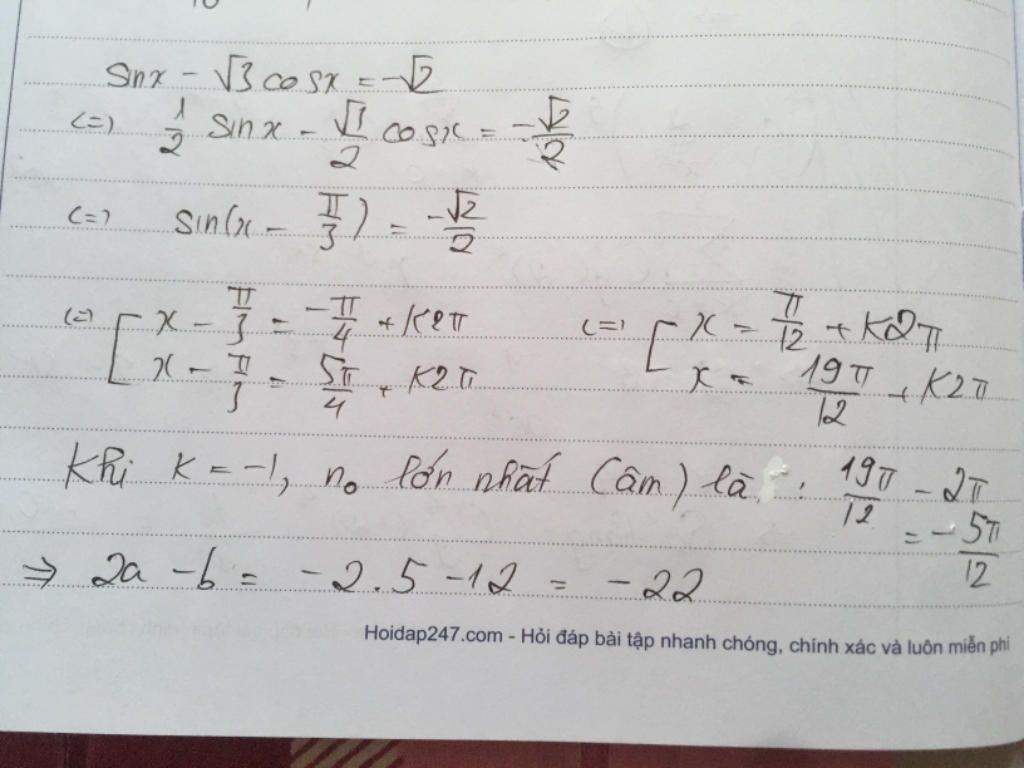 sinx - √3 cosx = -√2
<=> 1/2 sinx - √3/2 cosx = -√2/2
<=> sin(x - π/3) = -√2/2
<=> [ x - π/3 = -π/4 + K2π <=> [ x = π/12 + K2π
x - π/3 = 5π/4 + K2π x = 19π/12 + K2π
Khi K = -1, no lớn nhất (âm) là : 19π/12 - 2π
= -5π/12
=> 2a - b = -2.5 - 12 = -22
Hoidap247.com - Hỏi đáp bài tập nhanh chóng, chính xác và luôn miễn phí